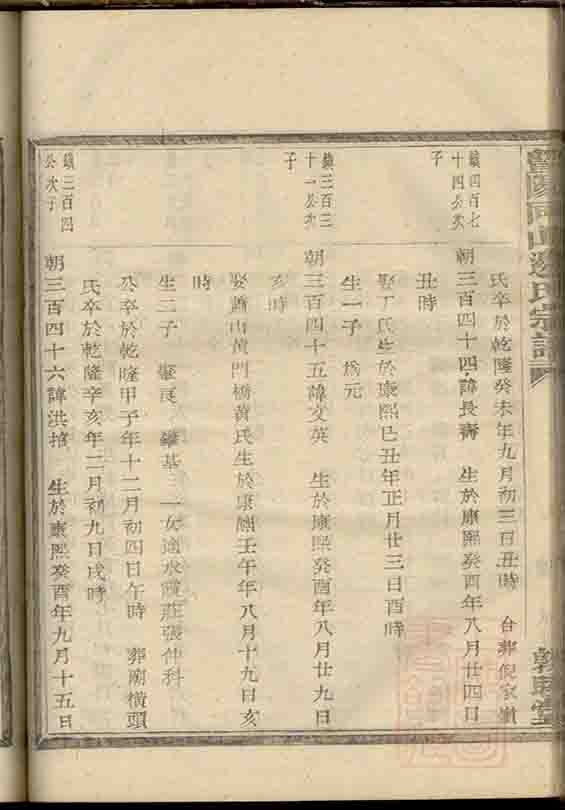 暨陽同山邊氏宗譜
敦睦堂
氏卒於乾隆癸未年九月初三日丑時 合葬倪家嶺
鎮四百七十四公次子
朝三百四十四諱長壽 生於康熙癸酉年八月廿四日
丑時
娶丁氏生於康熙己丑年正月廿三日酉時
生一子 為元
鎮三百三十一公次子
朝三百四十五諱文英 生於康熙癸酉年八月廿九日
亥時
娶蕭山黃門橋黃氏生於康熙壬午年八月十九日亥
時
生二子 肇 肇基 一女適水霞莊張仲科
公卒於乾隆甲子年十二月初四日午時 葬廟橫頭
氏卒於乾隆辛亥年二月初九日戌時
鎮三百四公次子
朝三百四十六諱洪 生於康熙癸酉年九月十五日